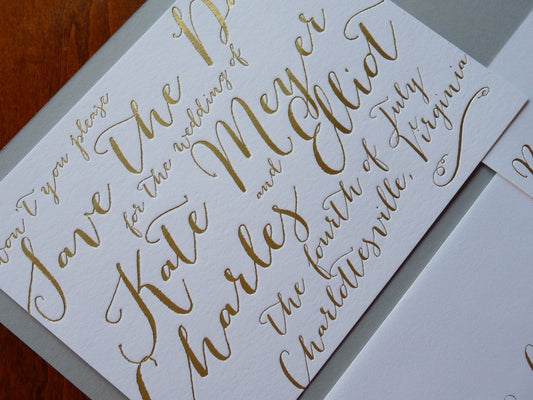 won't you please
Save the Da
for the wedding of
Kate Meyer
and
Charles Elliot
the fourth of July
Charlottesville, Virginia